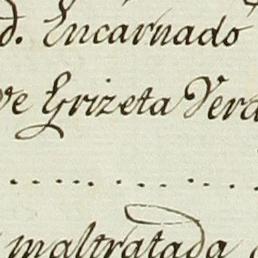 d. Encarnado
ve Grizeta Verd
maltratada